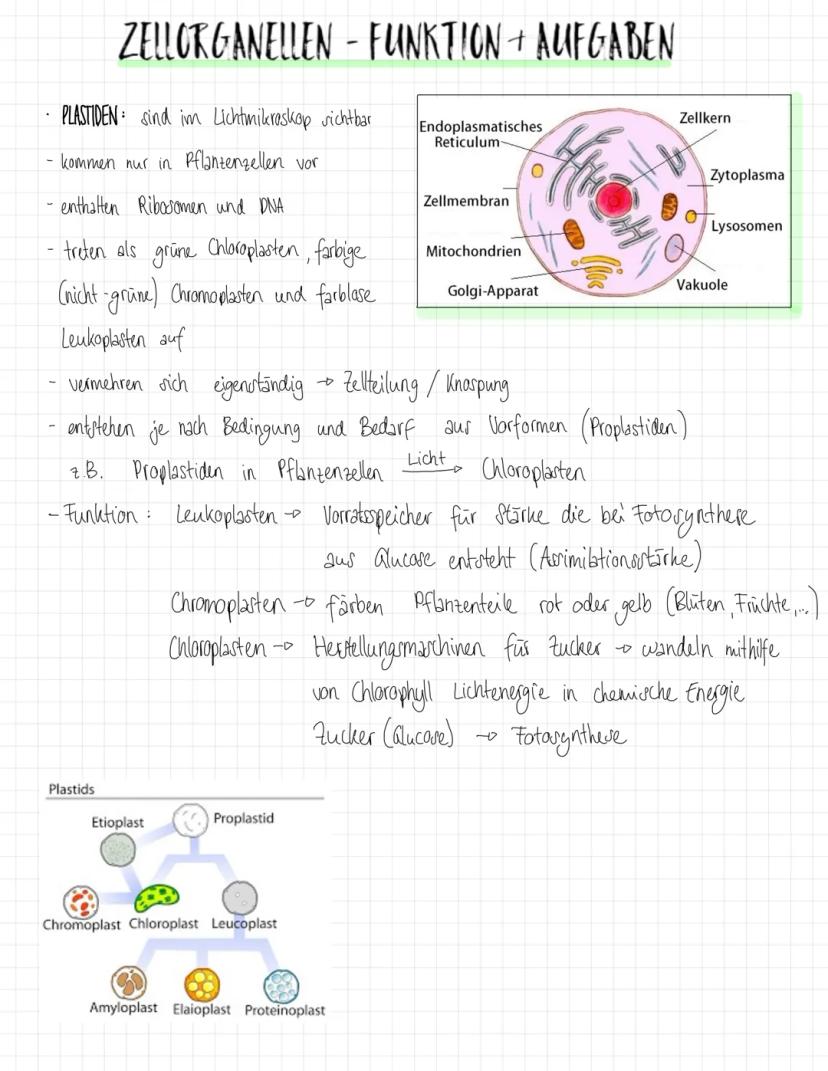 ZELLORGANELLEN - FUNKTION + AUFGABEN
· PLASTIDEN: sind im Lichtmikroskop sichtbar
- kommen nur in Pflanzenzellen vor
- enthalten Ribosomen und DNA
- treten als grüne Chloroplasten, farbige
(nicht-grüne) Chromoplasten und farblose
Leukoplasten auf
Endoplasmatisches
Reticulum
Zellkern
Zytoplasma
Zellmembran
Lysosomen
Mitochondrien
Golgi-Apparat
Vakuole
- vermehren sich eigenständig → Zellteilung / Knospung
- entstehen je nach Bedingung und Bedarf aus Vorformen (Proplastiden)
z.B. Proplastiden in Pflanzenzellen Licht → Chloroplasten
- Funktion: Leukoplasten → Vorratsspeicher für Stärke die bei Fotosynthese
aus Glucose entsteht (Assimilationsstärke)
Chromoplasten → färben Pflanzenteile rot oder gelb (Blüten, Früchte,...)
Chloroplasten → Herstellungsmaschinen für Zucker → wandeln mithilfe
von Chlorophyll Lichtenergie in chemische Energie
Zucker (Glucose) → Fotosynthese
Plastids
Etioplast
Proplastid
Chromoplast Chloroplast Leucoplast
Amyloplast Elaioplast Proteinoplast